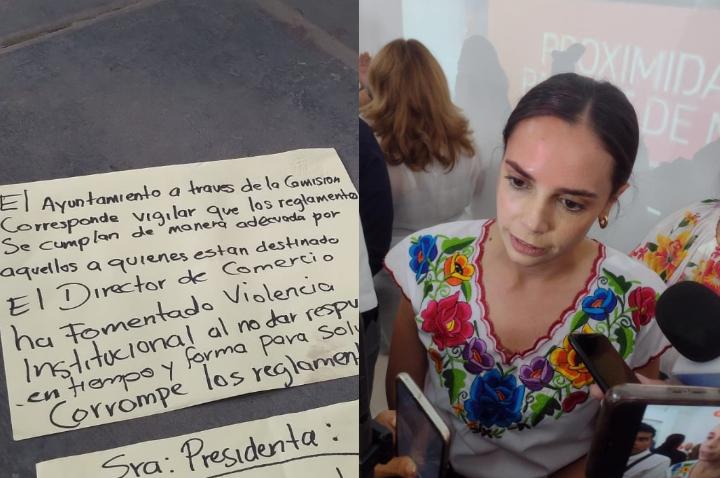 El Ayuntamiento a traves de la Comisión
Corresponde vigilar que los reglamentos
Se cumplan de manera adecuada por
aquellos a quienes estan destinado
El Director de Comercio
ha Fomentado Violencia
Institucional al no dar respu
en tiempo y forma para Solu
Corrompe los reglament
Sra: Presidenta:
PROXIMIDA
DE